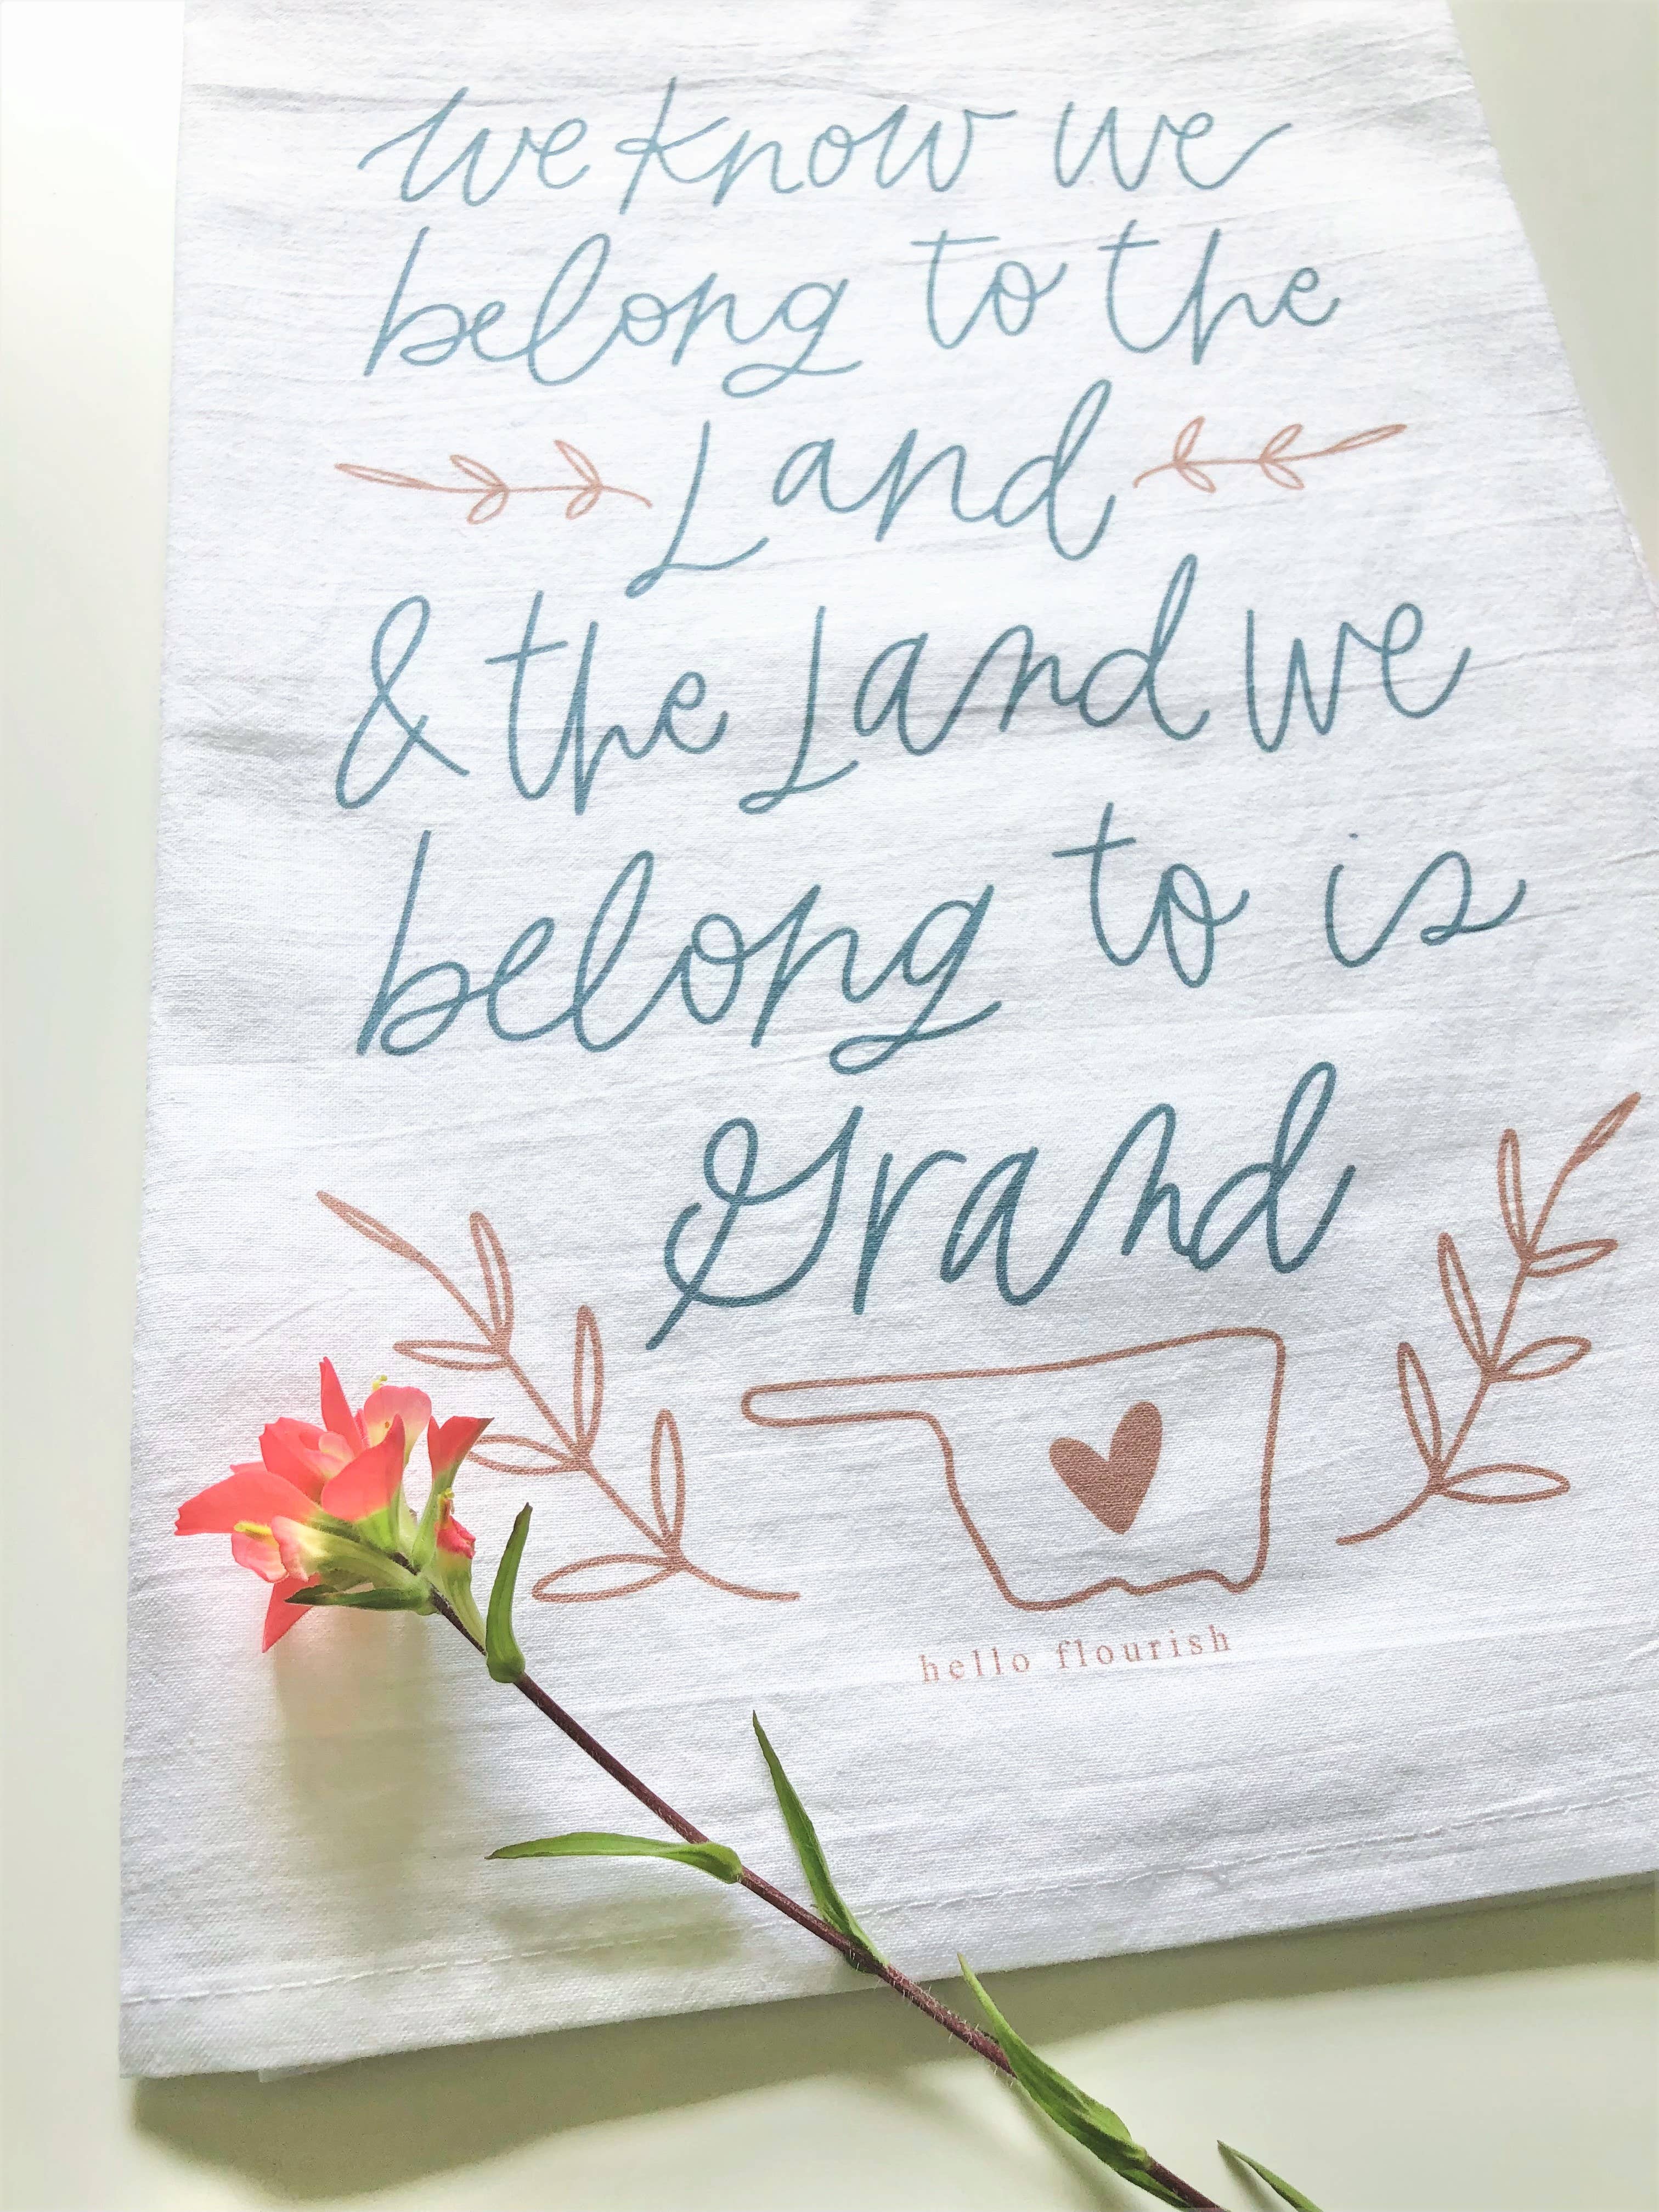 we know we
belong to the
Land
& the Land we
belong to is
Grand
hello flourish